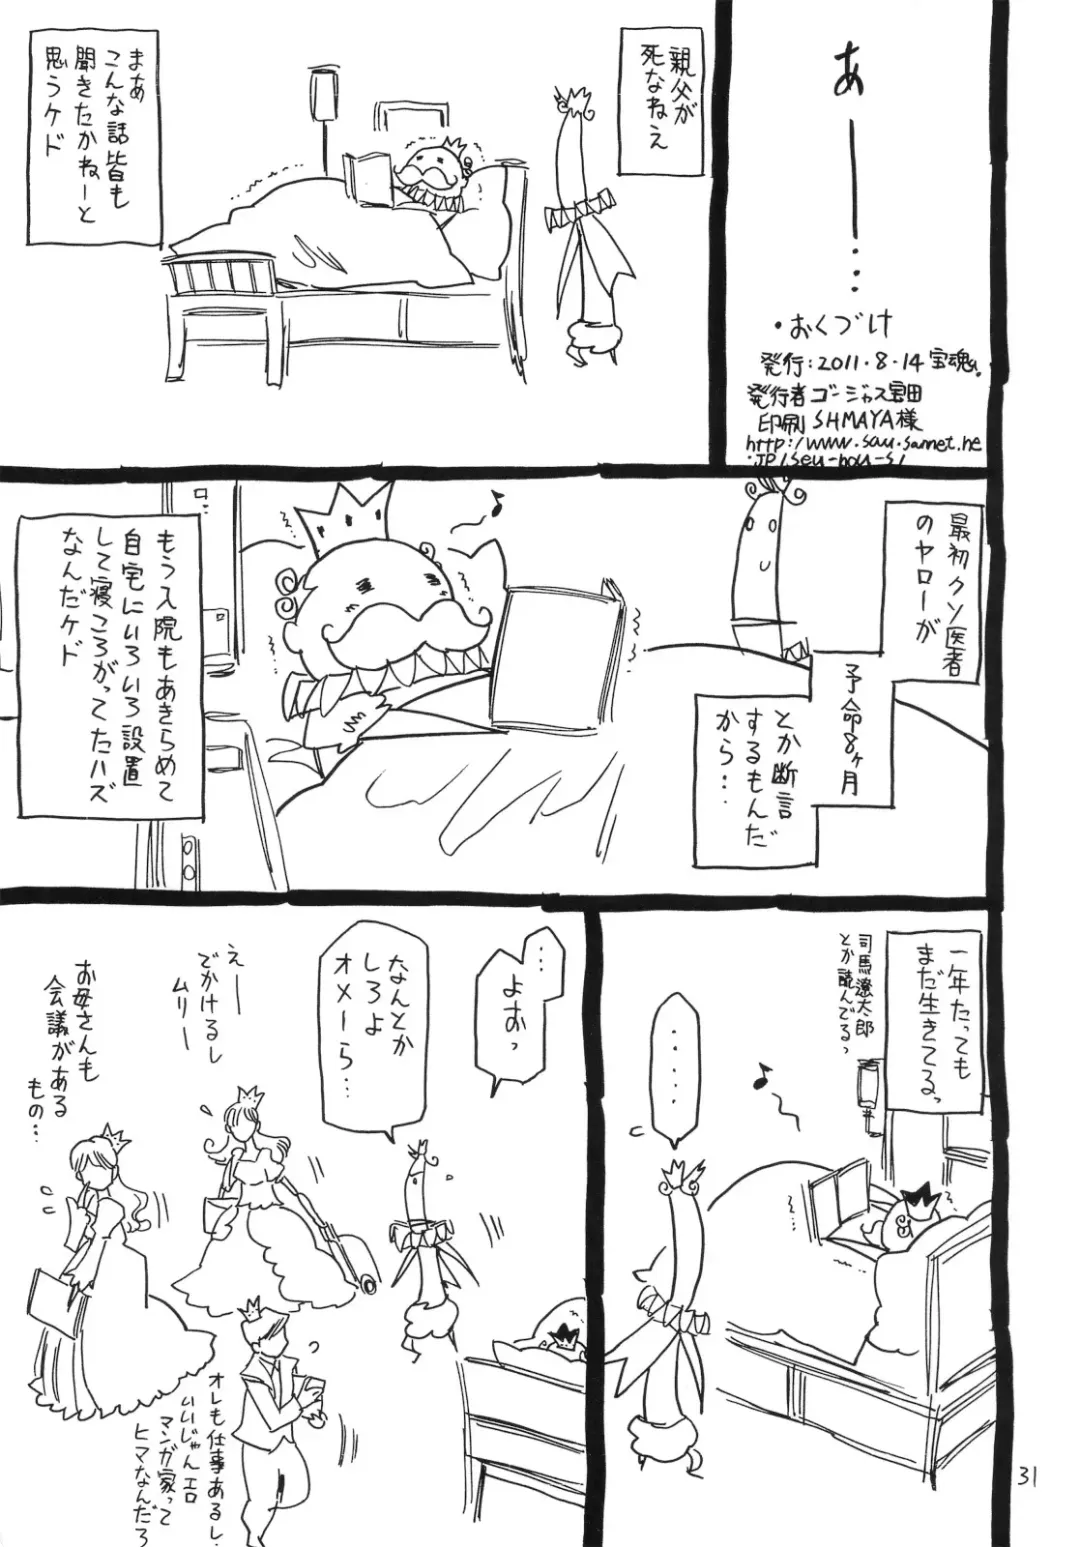 あ――…
・おくづけ
発行:2011.8.14 宝魂。
発行者 ゴージャス宝田
印刷 SHMAYA様
http://www.sau.sannet.ne
.jp/seu-nou-s/
親父が
死なねえ
まぁ
こんな話皆も
聞きたかねーと
思うケド
最初クソ医者
のヤローが
予命8ヶ月
とか断言
するもんだ
から…
もう入院もあきらめて
自宅にいろいろ設置
して寝ころがってたハズ
なんだケド
一年たっても
まだ生きてるっ
司馬遼太郎
とか読んでるっ
……
…
よおっ
なんとか
しろよ
オメーら…
えー
でかけるし
ムリー
お母さんも
会議がある
もの…
オレも仕事あるし
いいじゃんエロ
マンガ家って
ヒマなんだろ
31